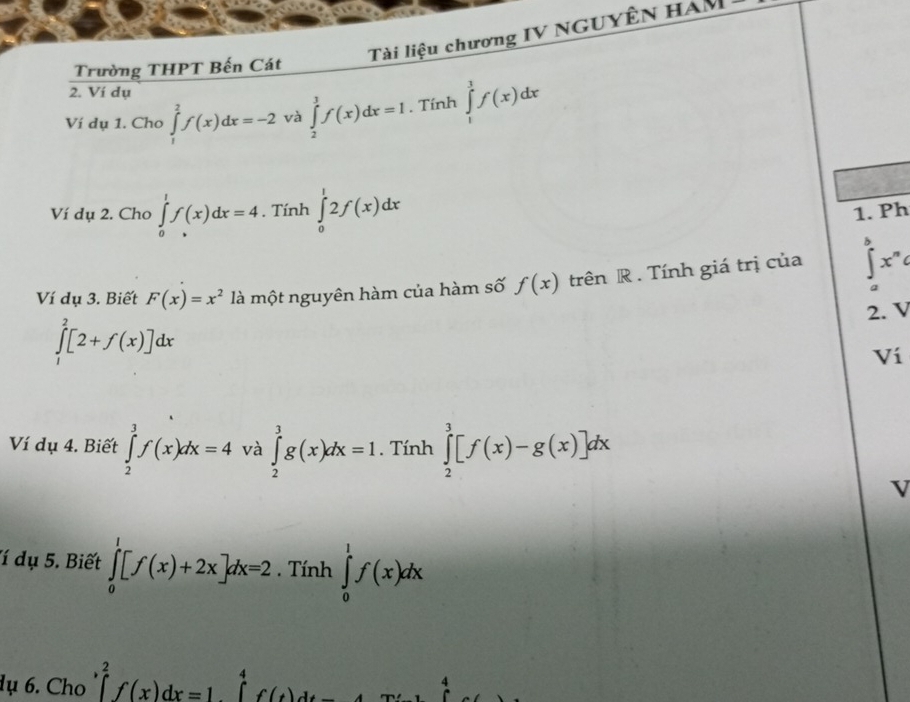 Trường THPT Bến Cát Tài liệu chương IV NGUYÊN HÀM –
2. Ví dụ
Ví dụ 1. Cho ∫₁² f(x)dx = −2 và ∫₂³ f(x)dx = 1. Tính ∫₁³ f(x)dx
Ví dụ 2. Cho ∫₀¹ f(x)dx = 4. Tính ∫₀¹ 2f(x)dx
Ví dụ 3. Biết F(x) = x² là một nguyên hàm của hàm số f(x) trên ℝ. Tính giá trị của
∫₁² [2 + f(x)]dx
Ví dụ 4. Biết ∫₂³ f(x)dx = 4 và ∫₂³ g(x)dx = 1. Tính ∫₂³ [f(x) − g(x)]dx
dụ 5. Biết ∫₀¹ [f(x) + 2x]dx=2. Tính ∫₀¹ f(x)dx
dụ 6. Cho ∫² f(x)dx = 1, ∫⁴ f(t)dt
1. Ph
∫ₐᵇ xⁿ
2. V
Ví
V